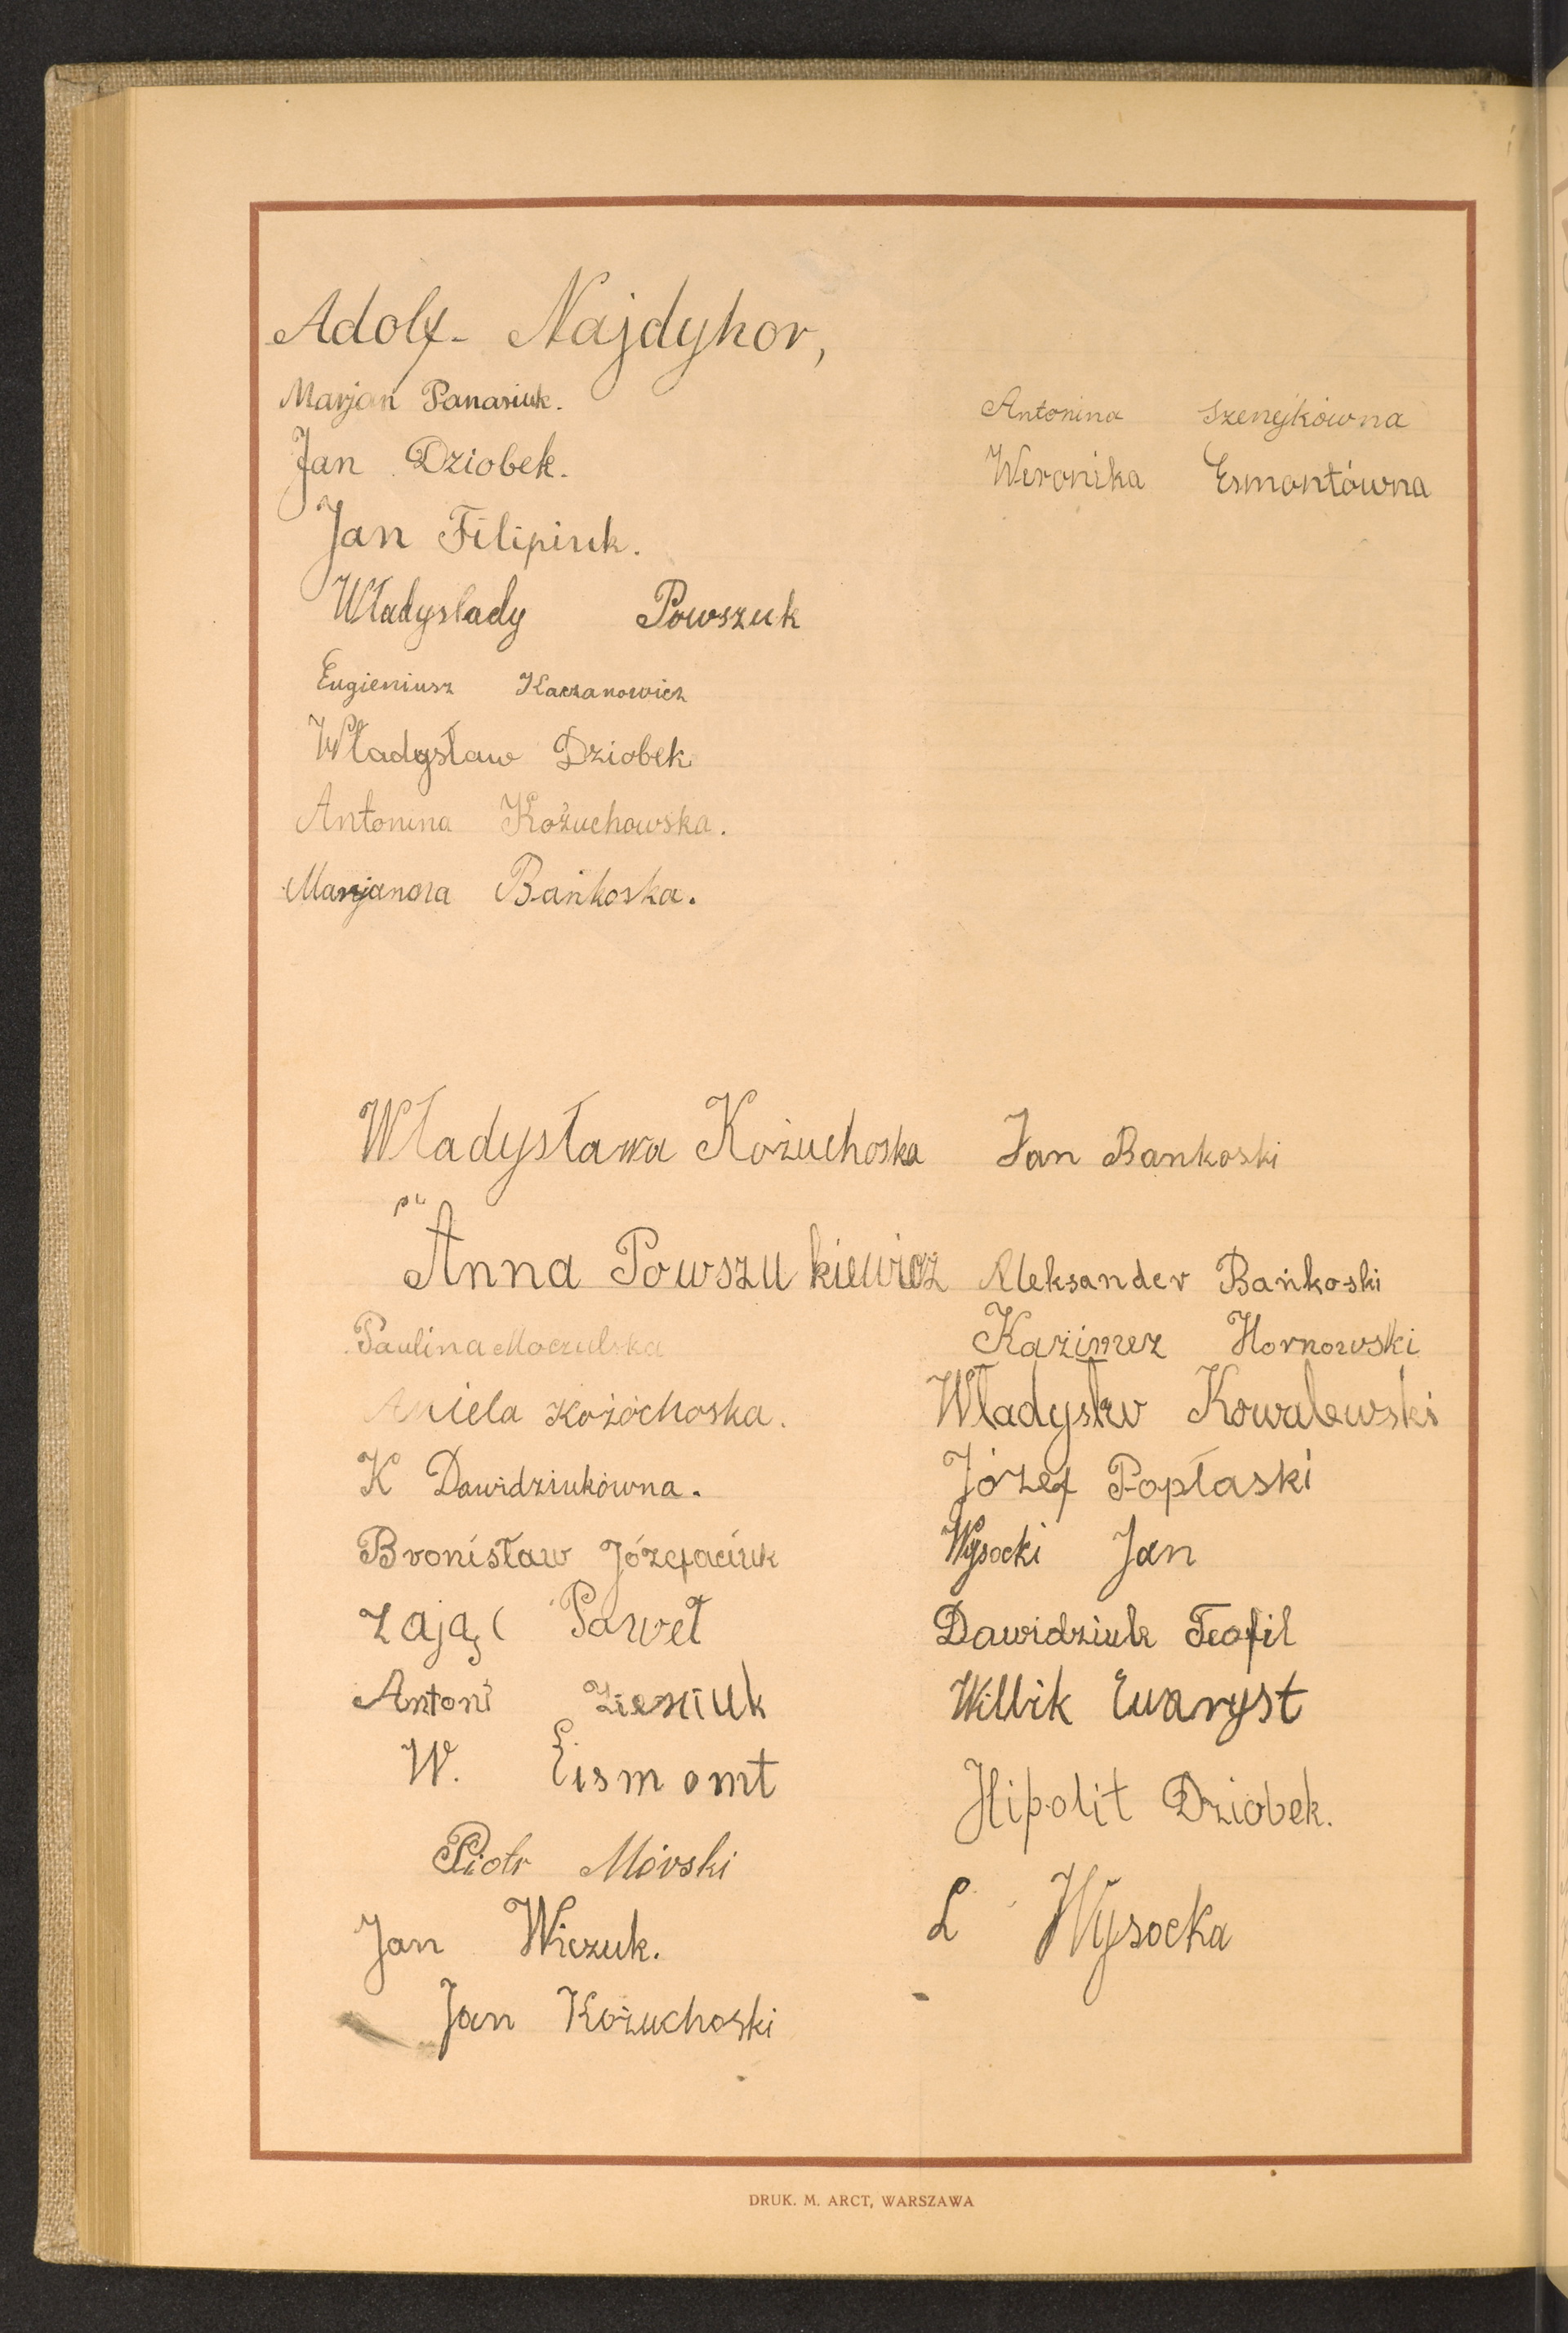 Adolf- Najdyhor,
Marjan Panasiuk.
Jan Dziobek.
Jan Filipiuk.
Władyslady Powszuk
Eugieniusz Kaczanowicz
Władysław Dziobek
Antonina Kożuchowska.
Marjanna Bańkoska.
Antonina Szenejkówna
Weronika Esmontówna
Władysława Kożuchoska
Anna Powszukiewicz
Paulina Moczulska
Aniela Kożóchoska.
K Dawidziukówna.
Bronisław Józefaciuk
Zając Paweł
Antoni Zieniuk
W. Eismomt
Piotr Mórski
Jan Wiczuk.
Jan Kożuchoski
Jan Bankoski
Aleksander Bańkoski
Kazimez Hornowski
Władysłw Kowalewski
Józef Popłaski
Wysocki Jan
Dawidziuk Teofil
Willik Ewaryst
Hipolit Dziobek.
L Wysocka
DRUK. M. ARCT, WARSZAWA